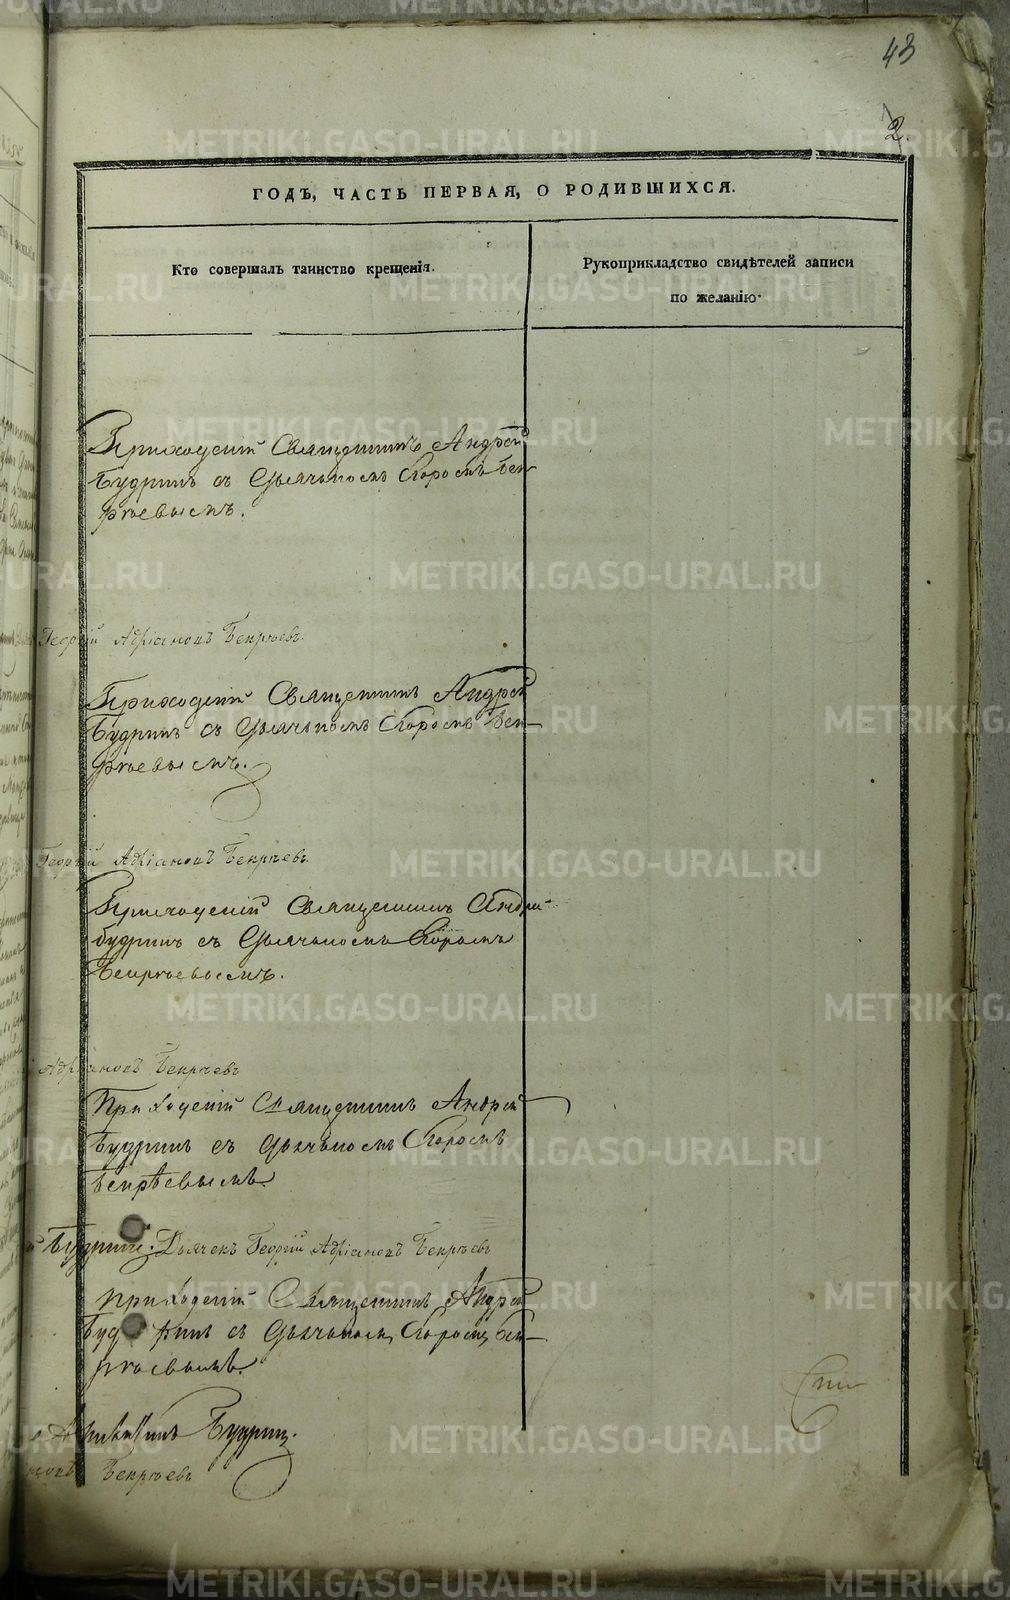 43
2.
ГОДЪ, ЧАСТЬ ПЕРВАЯ, О РОДИВШИХСЯ.
Кто совершалъ таинство крещенія.
Рукоприкладство свидѣтелей записи
по желанію.
Приходскій Священникъ Андрей
Будринъ съ Дьячькомъ Егоромъ Бек
рѣевымъ.
Георгій Адріановъ Бекрѣевъ.
Приходскій Священникъ Андрей
Будринъ съ Дьячькомъ Егоромъ Бек
рѣевымъ.
Георгій Адріановъ Бекрѣевъ
Приходскій Священникъ Андрей
Будринъ съ Дьячькомъ Егоромъ
Бекрѣевымъ.
Адріановъ Бекрѣевъ
Приходскій Священникъ Андрей
Будринъ съ Дьячькомъ Егоромъ
Бекрѣевымъ
Будринъ. Дьячекъ Георгій Адріановъ Бекрѣевъ
Приходскій Священникъ Андрей
Будринъ съ Дьячькомъ Егоромъ Бек
рѣевымъ.
Будринъ.
Бекрѣевъ
METRIKI.GASO-URAL.RU